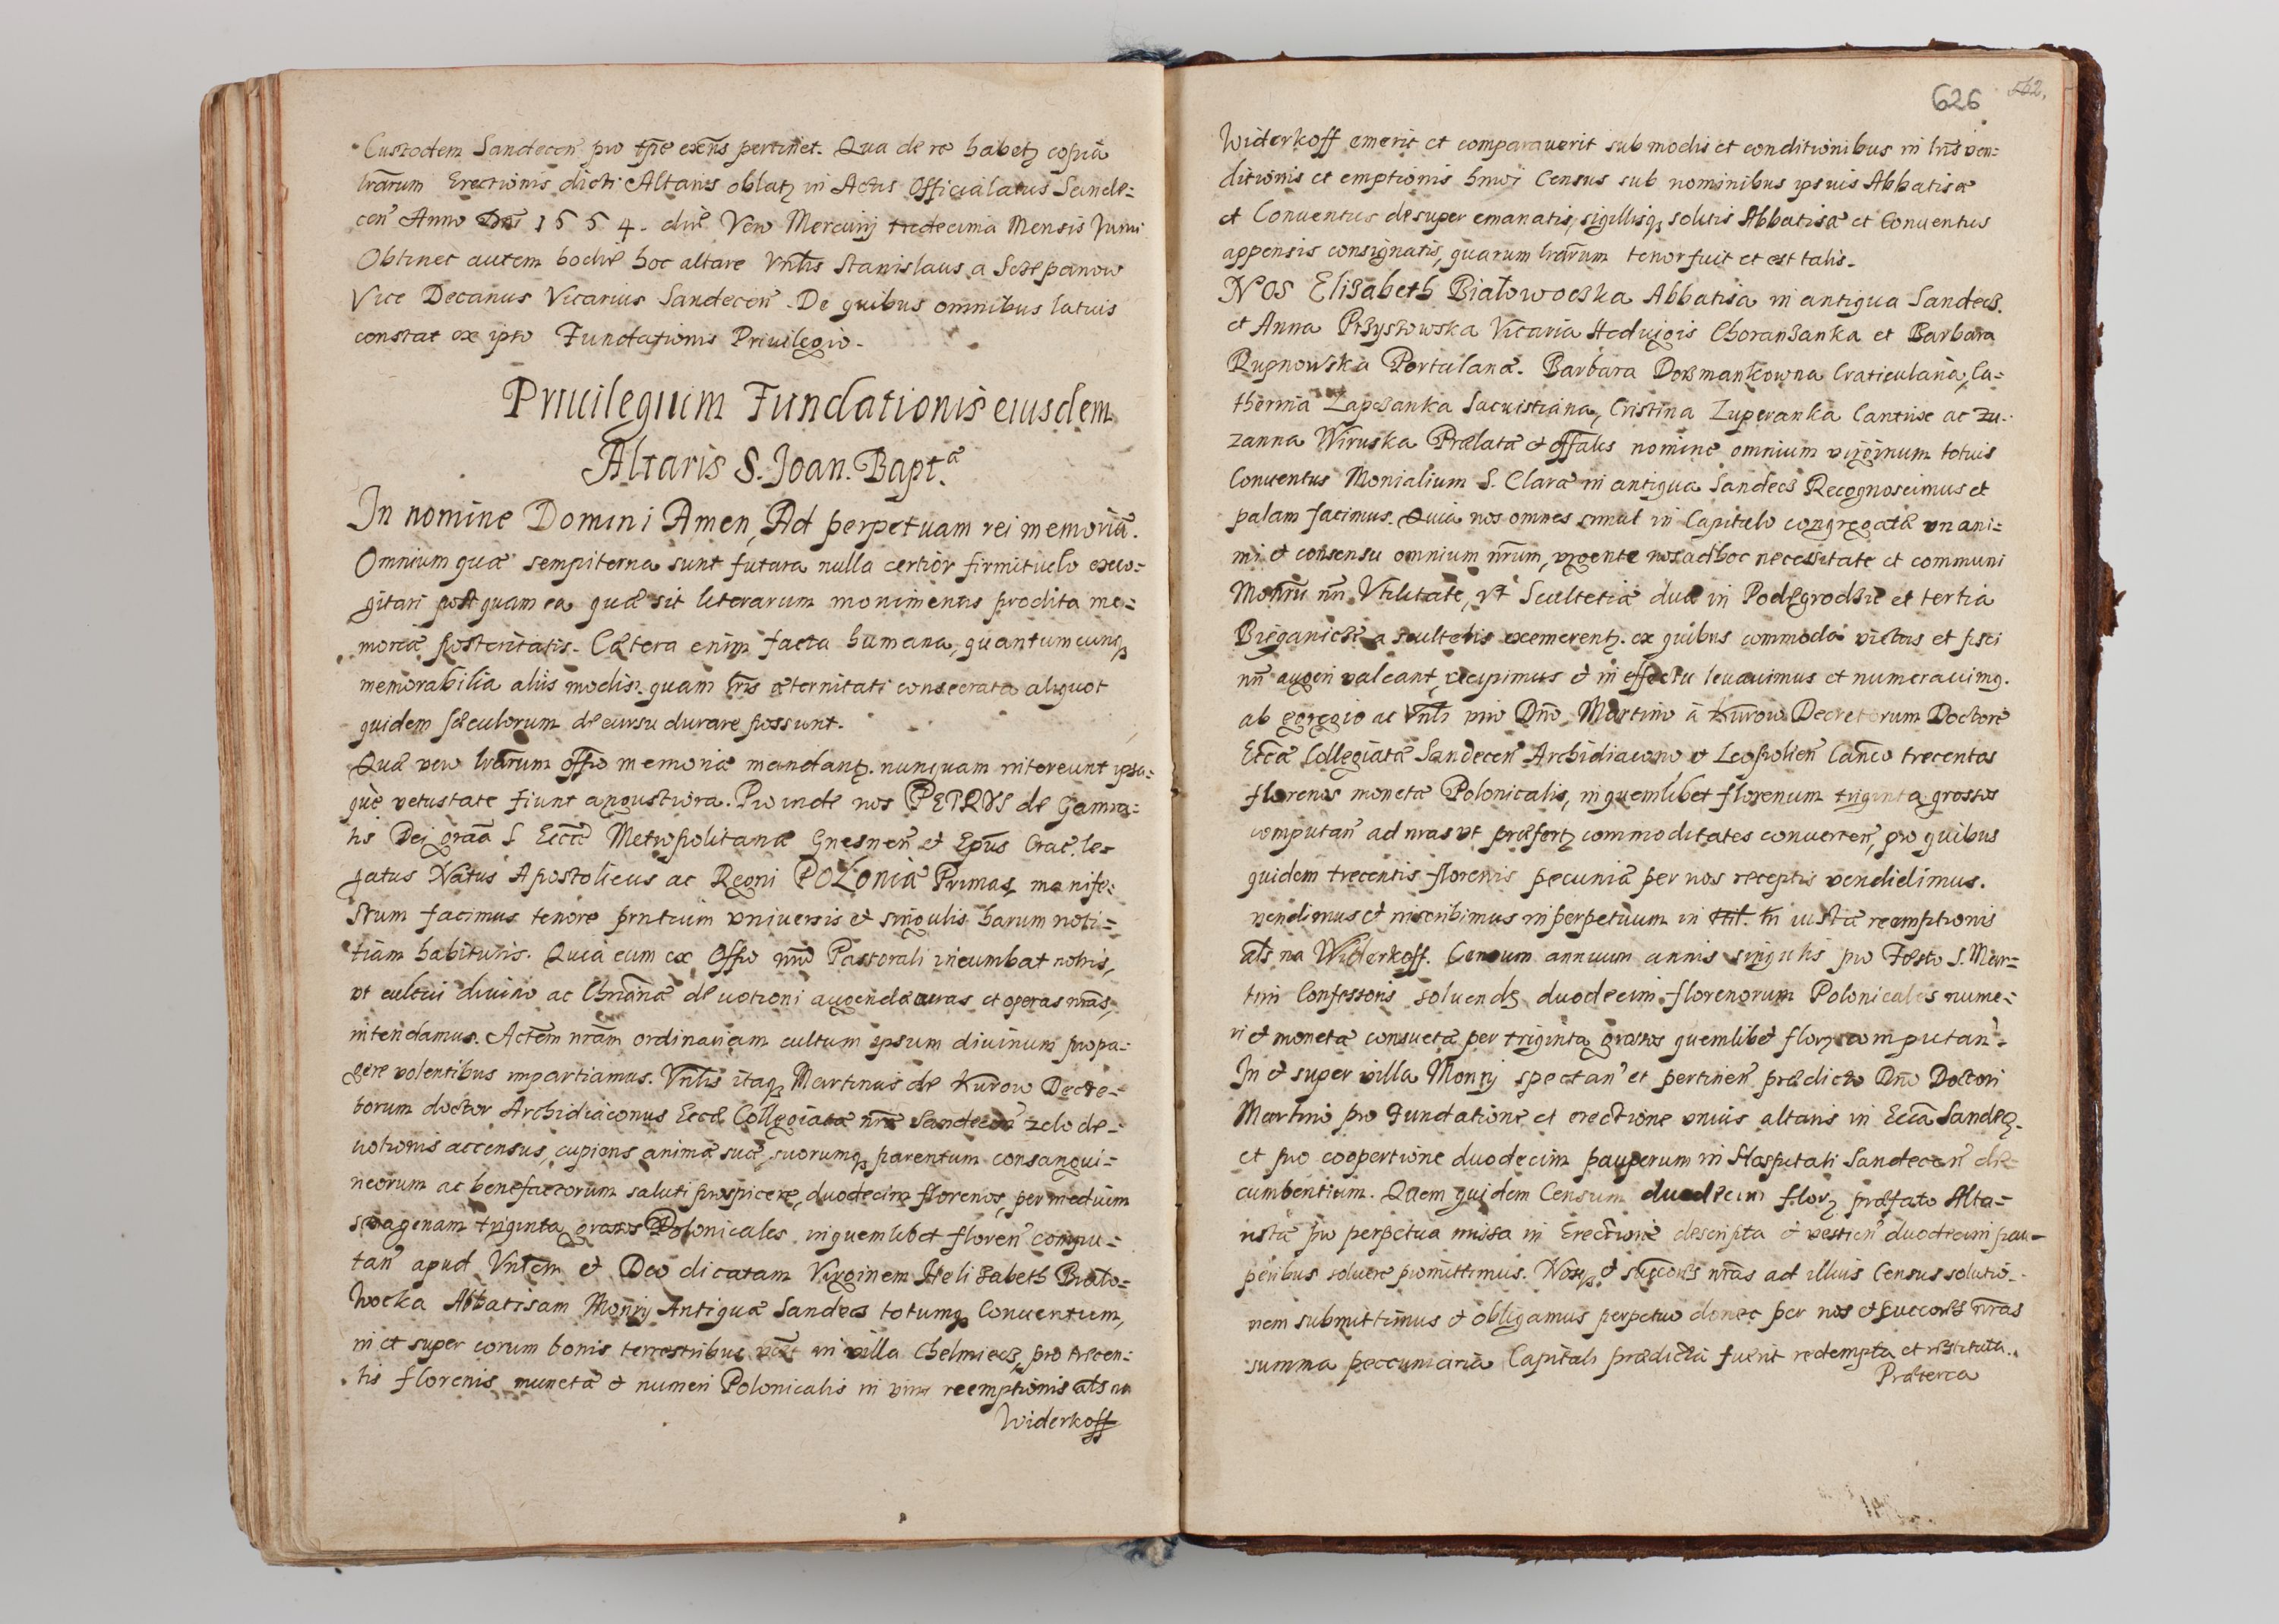 Custodem Sandecen̄ pro tp̄e exēns pertinet. Qua de re habetꝫ copiā
lrārum Erectionis dicti Altaris oblatꝫ in Actis Officialatus Sande-
cen̄ Anno Dnī 1554. die Vero Mercurij tredecima Mensis Junii
Obtinet autem hodie hoc altare Vnlīs Stanislaus a Sczepanow
Vice Decanus Vicarius Sandecen̄. De quibus omnibus latius
constat ex ipso Fundationis Priuilegio.
Priuilegium Fundationis eiusdem
Altaris S. Joan. Bapt.ae
In nomine Domini Amen, Ad perpetuam rei memoriā.
Omnium quæ sempiterna sunt futura nulla certior firmitudo exco-
gitari postquam ea quæ sit literarum monimentis prodita me-
moriæ posteritatis. Cætera enim facta humana, quantumcunqꝫ
memorabilia aliis modis quam lrīs æternitati consecrata aliquot
quidem sæculorum decursu durare possunt.
Quæ vero lrārum offō memoriæ mandantꝫ. nunquam intereunt ipsa-
què vetustate fiunt angustiora. Proinde nos PETRVS de Gamra-
tis Dej grāā S Eccæ Metropolitanæ Gnesnen̄ et Epūs Crac. le-
gatus Natus Apostolicus ac Regni POLONIÆ Primas manife-
stum facimus tenore prntium vniuersis et singulis harum noti-
tiam habituris. Quia cum ex Offō nrō Pastorali incumbat nobis,
vt cultui diuino ac Chrīanæ deuotioni augendæ curas et operas nrās,
intendamus. Actēm nrām ordinariam cultum ipsum diuinum propa-
gere volentibus impartiamus. Vnlīs itaqꝫ Martinus de Kurow Decre-
torum doctor Archidiaconus Eccæ Collegiatæ nræ Sandecen̄ zelo de-
uotionis accensus, cupiens animæ suæ, suorumqꝫ parentum consangui-
neorum ac benefactorum saluti prospicere, duodecim florenos, per medium
sexagenam triginta grosos Polonicales in quemlibet floren̄ compu-
tan̄ apud Vnlēm et Deo dicatam Virginem Helizabeth Biało-
wocka Abbatisam Monrÿ Antiquæ Sandecz totumqꝫ Conuentum,
in et super eorum bonis terrestribus vēēt in villa Chelmiecz, pro trecen-
tis florenis munetæ et numeri Polonicalis in vim reemptionis als na
Widerkoff
626 562.
Widerkoff emerit et comparauerit sub modis et conditionibus in lrīs ven-
ditionis et emptionis hmōi Census sub nominibus ipsius Abbatisæ
et Conuentus desuper emanatis, sigillisqꝫ solitis Abbatisæ et Conuentus
appensis consignatis, quarum lrārum tenor fuit et est talis.
NOS Elisabeth Białowoczka Abbatisa in antiqua Sandecz.
et Anna Przystowska Vicaria Heduigis Choranzanka et Barbara
Rupnowska Portulanæ. Barbara Dorzmankowna Craticulana, Ca-
therina Zapczanka Sacristiana, Cristina Zuperanka Cantrix ac Zu-
zanna Wiruska Prælatæ et offāles nomine omnium virginum totius
Conuentus Monialium S. Claræ in antiqua Sandecz Recognoscimus et
palam facimus. Quia nos omnes simul in Capitulo congregatæ vnani-
mi et consensu omnium nrūm, vrgente nos ad hoc necessitate et communi
Monrīj nrī Vtilitate, vt Scultetiæ duæ in Podegrodzie et tertia
Biéganicze a scultetis exemerentꝫ. ex quibus commoda victus et fisci
nrī augeri valeant, recipimus et in effectu leuauimus et numerauimꝫ.
ab egregio ac Vnlī viro Dnō Martino à Kurow Decretorum Doctore
Eccæ Collegiatæ Sandecen̄ Archidiacono et Leopolien̄ Canco trecentos
florenos monetæ Polonicalis, in quemlibet florenum triginta grossos
computan̄ ad nras vt præfertꝫ commoditates conuerten̄, pro quibus
quidem trecentis florenis pecuniæ per nos receptis vendidimus.
vendimus et inscribimus in perpetuum in tit. tn̄ iustæ reemptionis
als na Widerkoff. Censum annuum annis singulis pro Festo S. Mar-
tini Confessoris soluendꝫ duodecim florenorum Polonicales nume-
ri et monetæ consuetæ per triginta grosos quemlibet florꝫ computan̄.
In et super villa Monrÿ spectan̄ et pertinen̄ prædicto Dnō Doctori
Martino pro Fundatione et erectione vnius altaris in Eccā Sandecꝫ.
et pro coopertione duodecim pauperum in Hospitali Sandecen̄ de-
cumbentium. Quem quidem Censum duodecim florꝫ præfato Alta-
ristæ pro perpetua missa in Erectione descripta et vestien̄ duodecim pau-
peribus soluere promittimus. Nosqꝫ et succores nrās ad illius Census solutio-
nem submittimus et obligamus perpetuo donec per nos et succores nrās
summa peccuniaria Capitali prædicta fuerit redempta et restituta.
Præterea